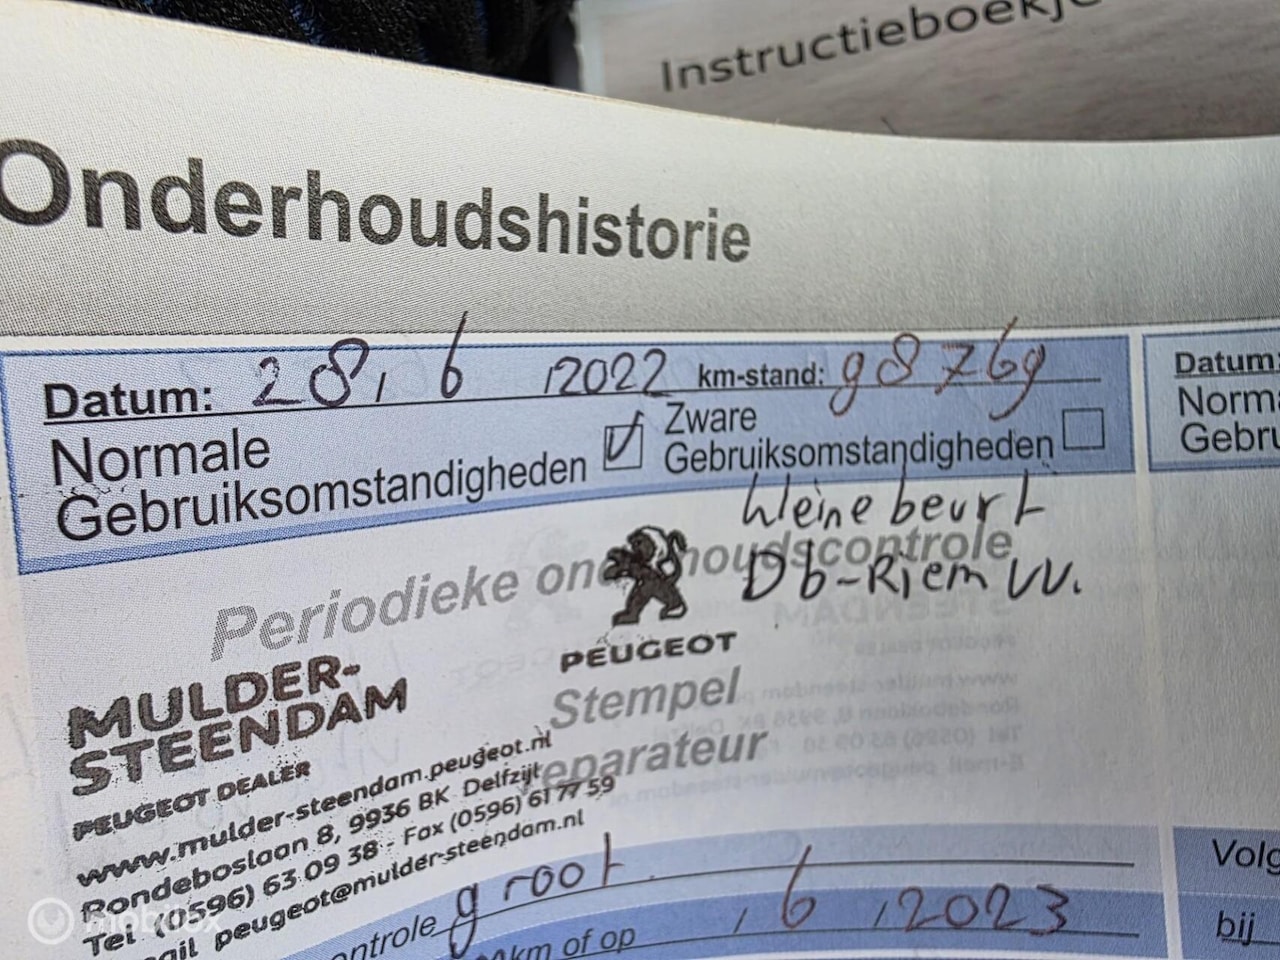 Instructieboekje
Onderhoudshistorie
Datum: 28, 6 , 2022 km-stand: 98769
Normale
Gebruiksomstandigheden
Zware
Gebruiksomstandigheden
kleine beurt
Db-Riem VV.
Periodieke onderhoudscontrole
PEUGEOT
Stempel
reparateur
MULDER-
STEENDAM
PEUGEOT DEALER
www.mulder-steendam.peugeot.nl
Rondeboslaan 8, 9936 BK Delfzijl
Tel (0596) 63 09 38 - Fax (0596) 61 77 59
ail peugeot@mulder-steendam.nl
ontrole groot
km of op , 6 , 2023
Datum:
Norma
Gebru
Volg
bij
mobilox